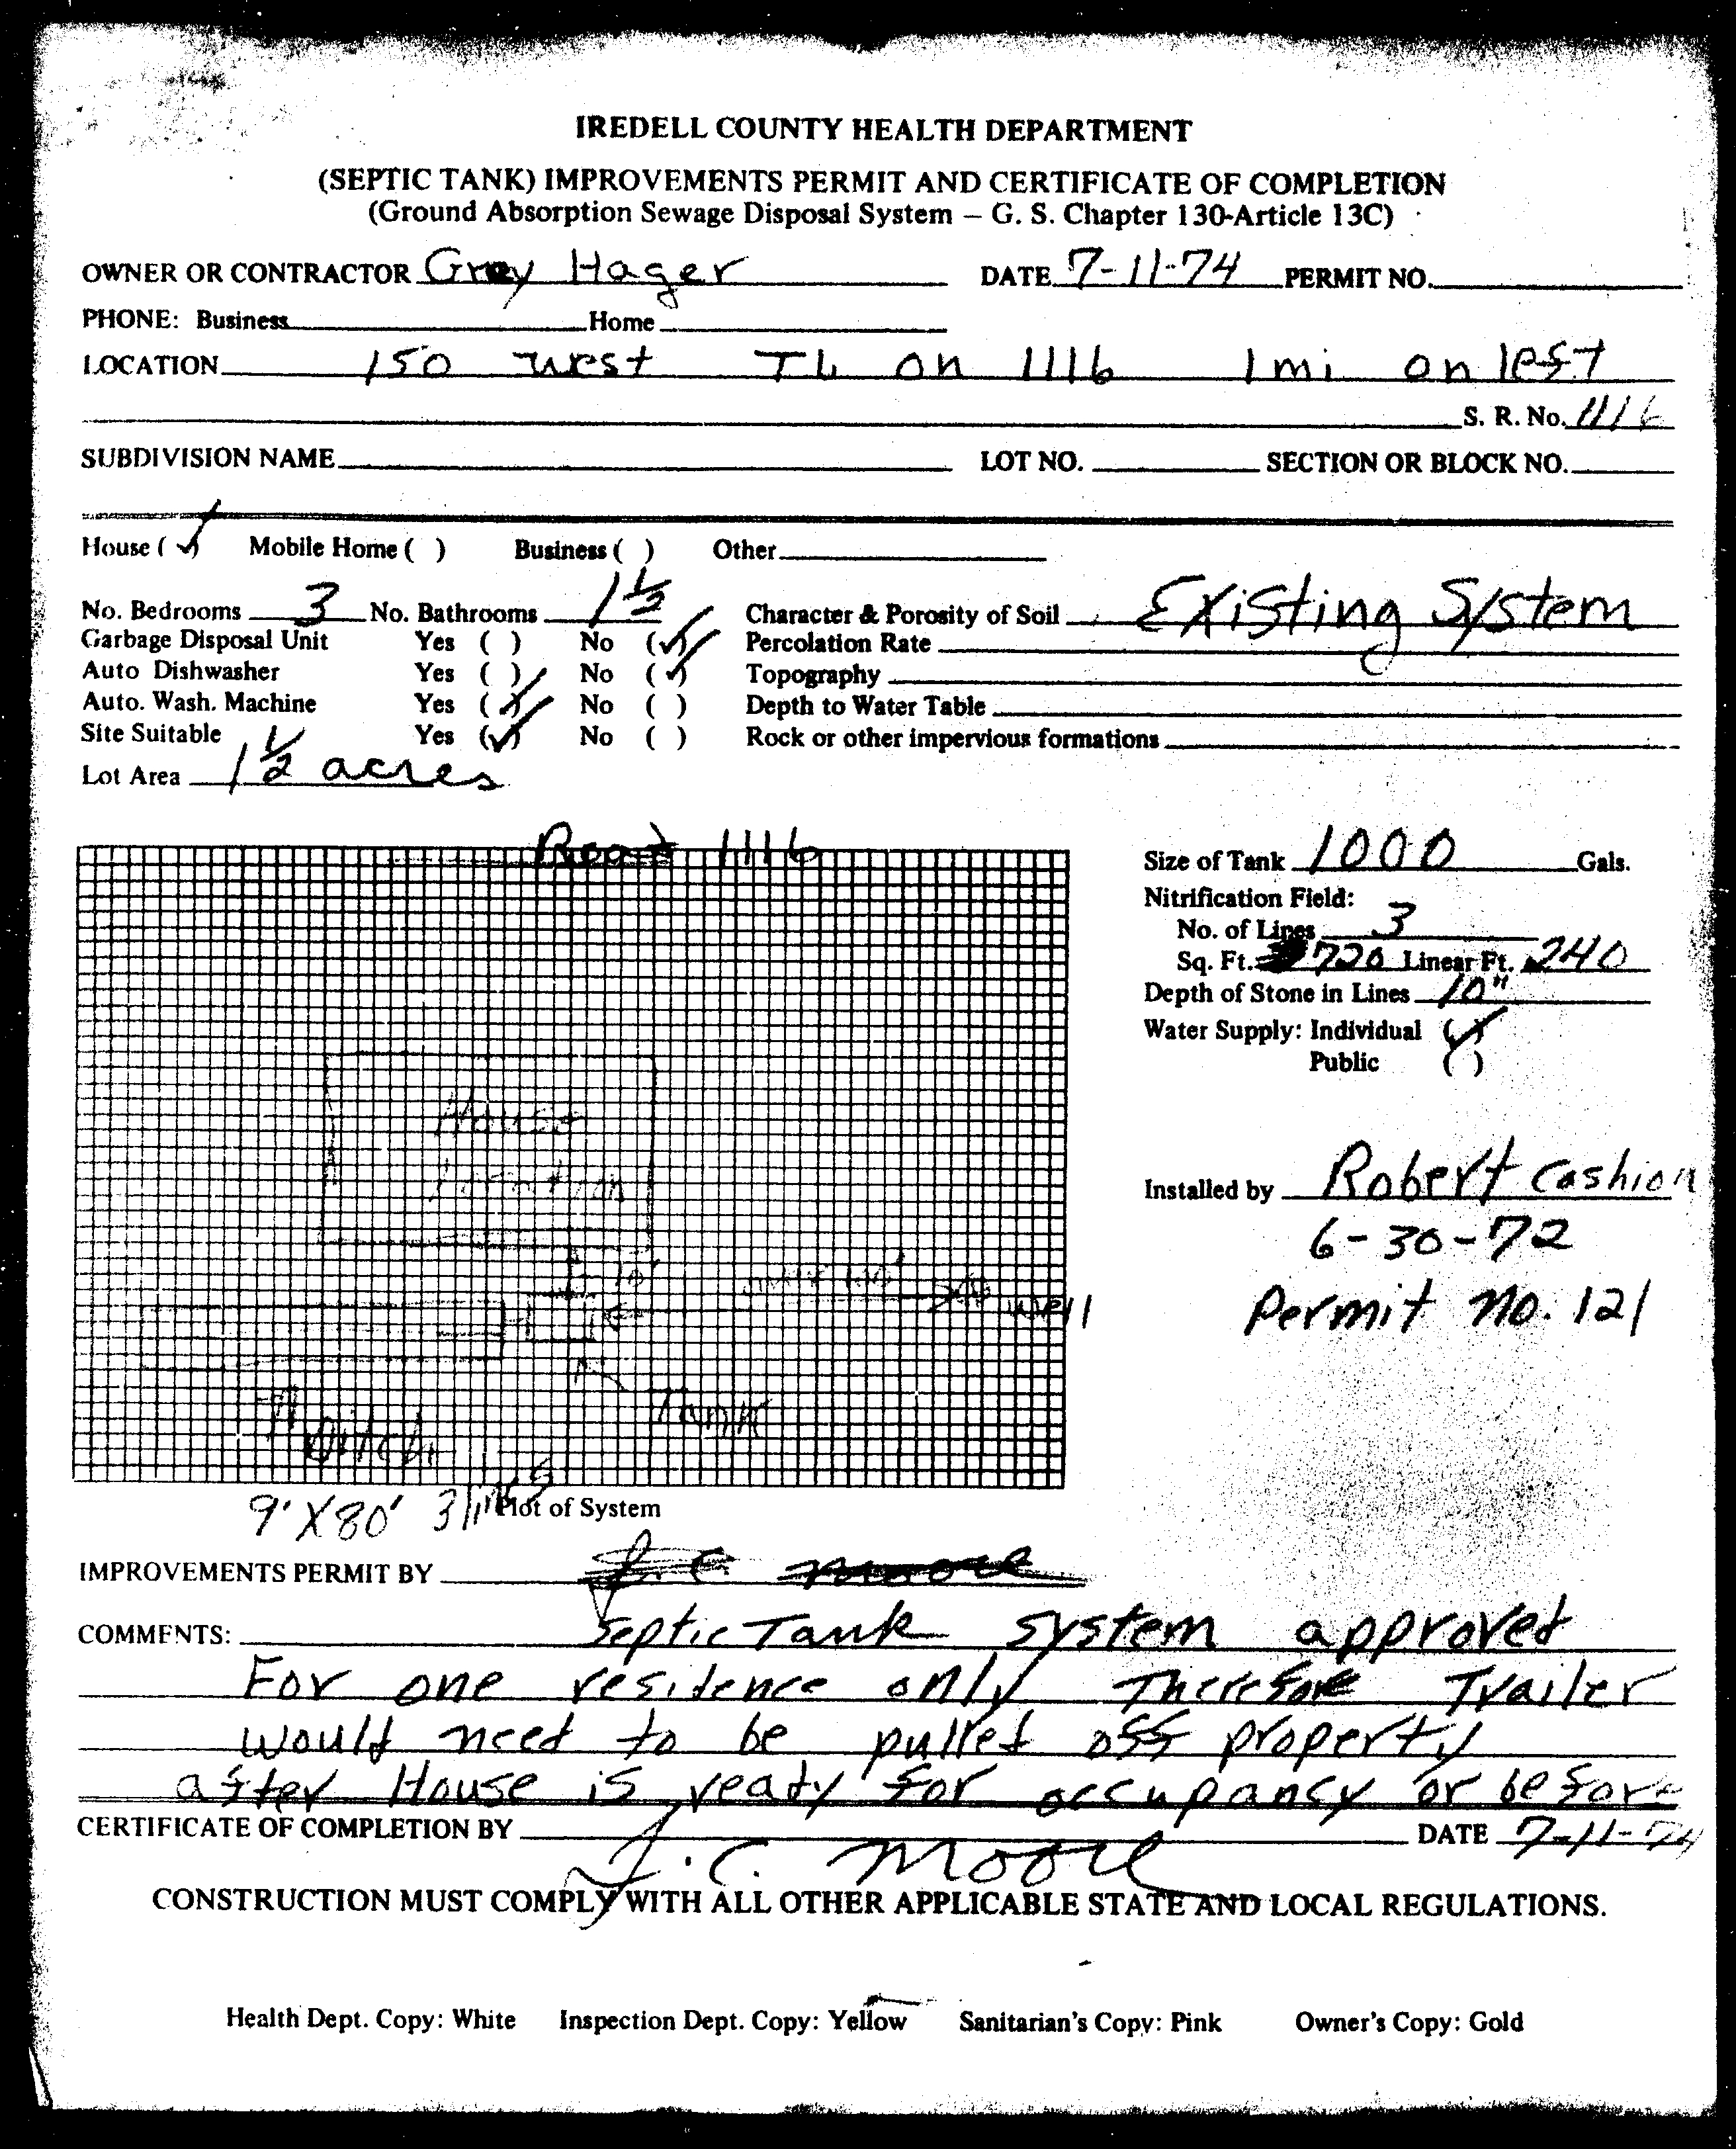 IREDELL COUNTY HEALTH DEPARTMENT
(SEPTIC TANK) IMPROVEMENTS PERMIT AND CERTIFICATE OF COMPLETION
(Ground Absorption Sewage Disposal System – G. S. Chapter 130-Article 13C)
OWNER OR CONTRACTOR Gray Hager DATE 7-11-74 PERMIT NO.
PHONE: Business Home
LOCATION 150 West TL on 1116 1 mi on left
S. R. No. 1116
SUBDIVISION NAME LOT NO. SECTION OR BLOCK NO.
House (✓) Mobile Home ( ) Business ( ) Other
No. Bedrooms 3 No. Bathrooms 1 1/2 Character & Porosity of Soil Existing System
Garbage Disposal Unit Yes ( ) No (✓) Percolation Rate
Auto Dishwasher Yes ( ) No (✓) Topography
Auto. Wash. Machine Yes (✓) No ( ) Depth to Water Table
Site Suitable Yes (✓) No ( ) Rock or other impervious formations
Lot Area 1 1/2 acres
Road 1116
Size of Tank 1000 Gals.
Nitrification Field:
No. of Lines 3
Sq. Ft. 720 Linear Ft. 240
Depth of Stone in Lines 10"
Water Supply: Individual (✓)
Public ( )
House
Location
10'
over 100'
well
Tank
Ditch
Installed by Robert Cashion
6-30-72
Permit no. 121
9' X 80' 3 lines
Plot of System
IMPROVEMENTS PERMIT BY J. C. Moore
COMMENTS: Septic Tank System approved
For one residence only Therefore Trailer
would need to be pulled off property
after House is ready for occupancy or before
CERTIFICATE OF COMPLETION BY J. C. Moore DATE 7-11-74
CONSTRUCTION MUST COMPLY WITH ALL OTHER APPLICABLE STATE AND LOCAL REGULATIONS.
Health Dept. Copy: White Inspection Dept. Copy: Yellow Sanitarian's Copy: Pink Owner's Copy: Gold